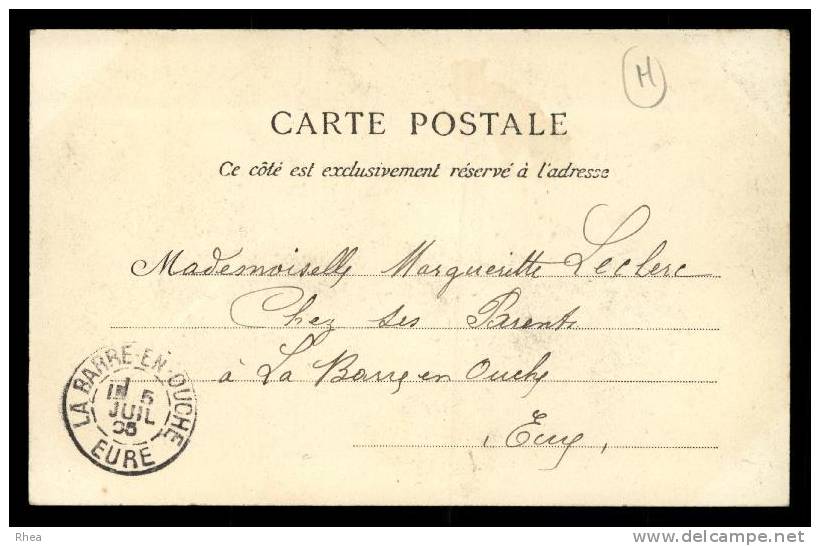 M
CARTE POSTALE
Ce côté est exclusivement réservé à l'adresse
Mademoiselle Margueritte Leclerc
Chez ses Parents
à La Barre en Ouche
Eure
LA BARRE-EN-OUCHE
5
JUIL
05
EURE
Rhea
www.delcampe.net